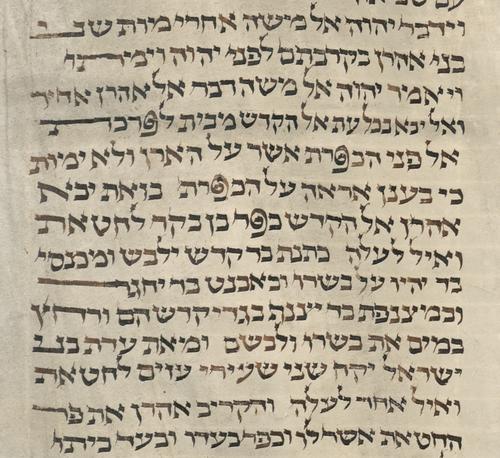 וידבר יהוה אל משה אחרי מות שני
בני אהרן בקרבתם לפני יהוה וימתו
ויאמר יהוה אל משה דבר אל אהרן אחיך
ואל יבא בכל עת אל הקדש מבית לפרכת
אל פני הכפרת אשר על הארן ולא ימות
כי בענן אראה על הכפרת בזאת יבא
אהרן אל הקדש בפר בן בקר לחטאת
ואיל לעלה כתנת בד קדש ילבש ומכנסי
בד יהיו על בשרו ובאבנט בד יחגר
ובמצנפת בד יצנף בגדי קדש הם ורחץ
במים את בשרו ולבשם ומאת עדת בני
ישראל יקח שני שעירי עזים לחטאת
ואיל אחד לעלה והקריב אהרן את פר
החטאת אשר לו וכפר בעדו ובעד ביתו